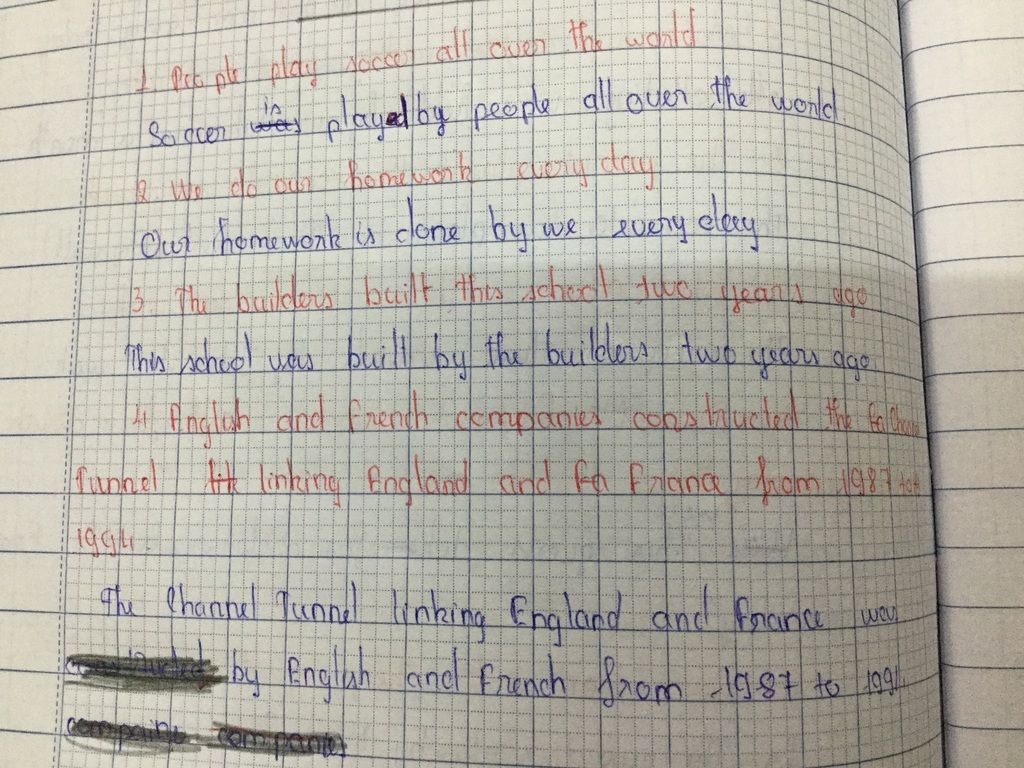 1. People play soccer all over the world
Soccer is played by people all over the world
2. We do our homework every day
Our homework is done by we every day
3. The builders built this school two years ago
This school was built by the builders two years ago
4. English and French companies constructed the Channel
Tunnel linking England and France from 1987 to
1994.
The Channel Tunnel linking England and France was
constructed by English and French from 1987 to 1994
companies